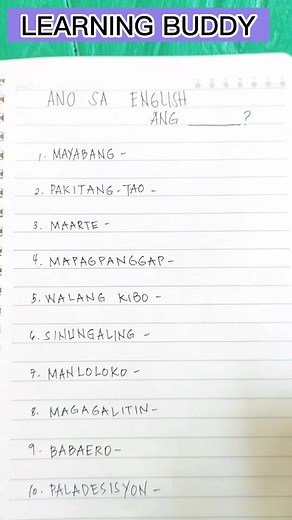 LEARNING BUDDY
ANO SA ENGLISH
ANG ______?
1. MAYABANG -
2. PAKITANG-TAO -
3. MAARTE -
4. MAPAGPANGGAP -
5. WALANG KIBO -
6. SINUNGALING -
7. MANLOLOKO -
8. MAGAGALITIN -
9. BABAERO -
10. PALADESISYON -